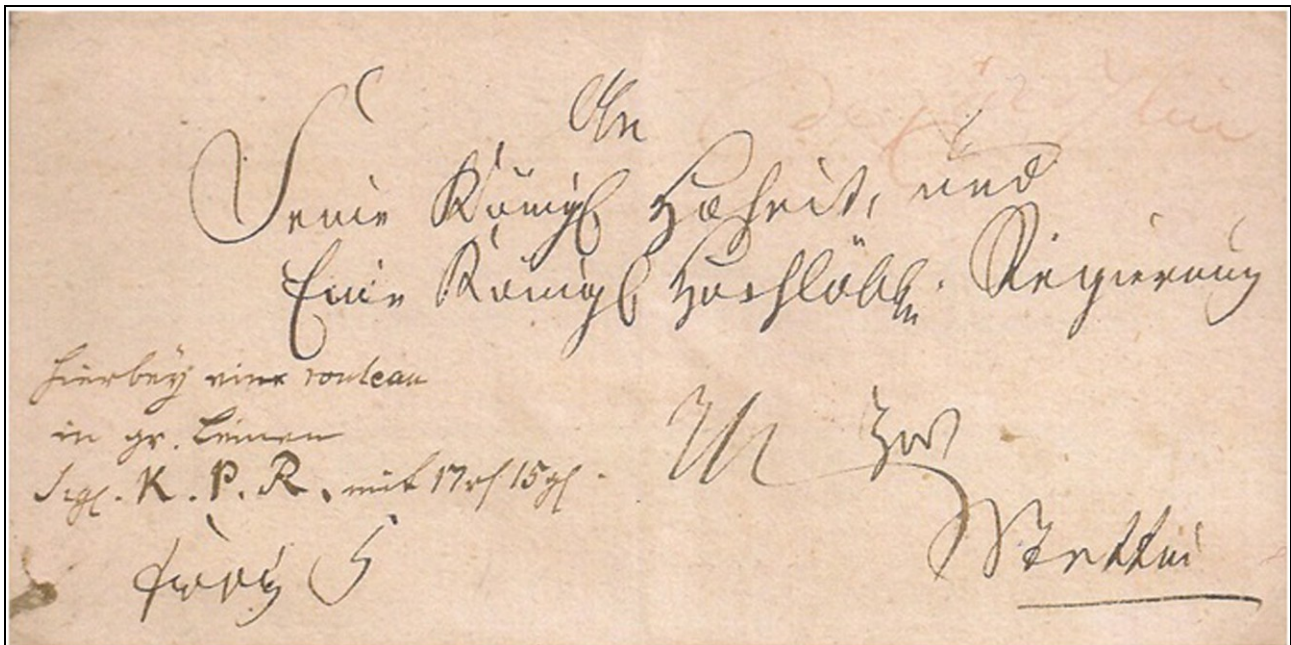 An
Seine Königl Hoheit, und
Eine Königl Hochlöbl. Regierung
hierbey ein rouleau
in gr. Leinen
Sigl. K. P. R. mit 17 rh 15 gh.
zu
Stettin